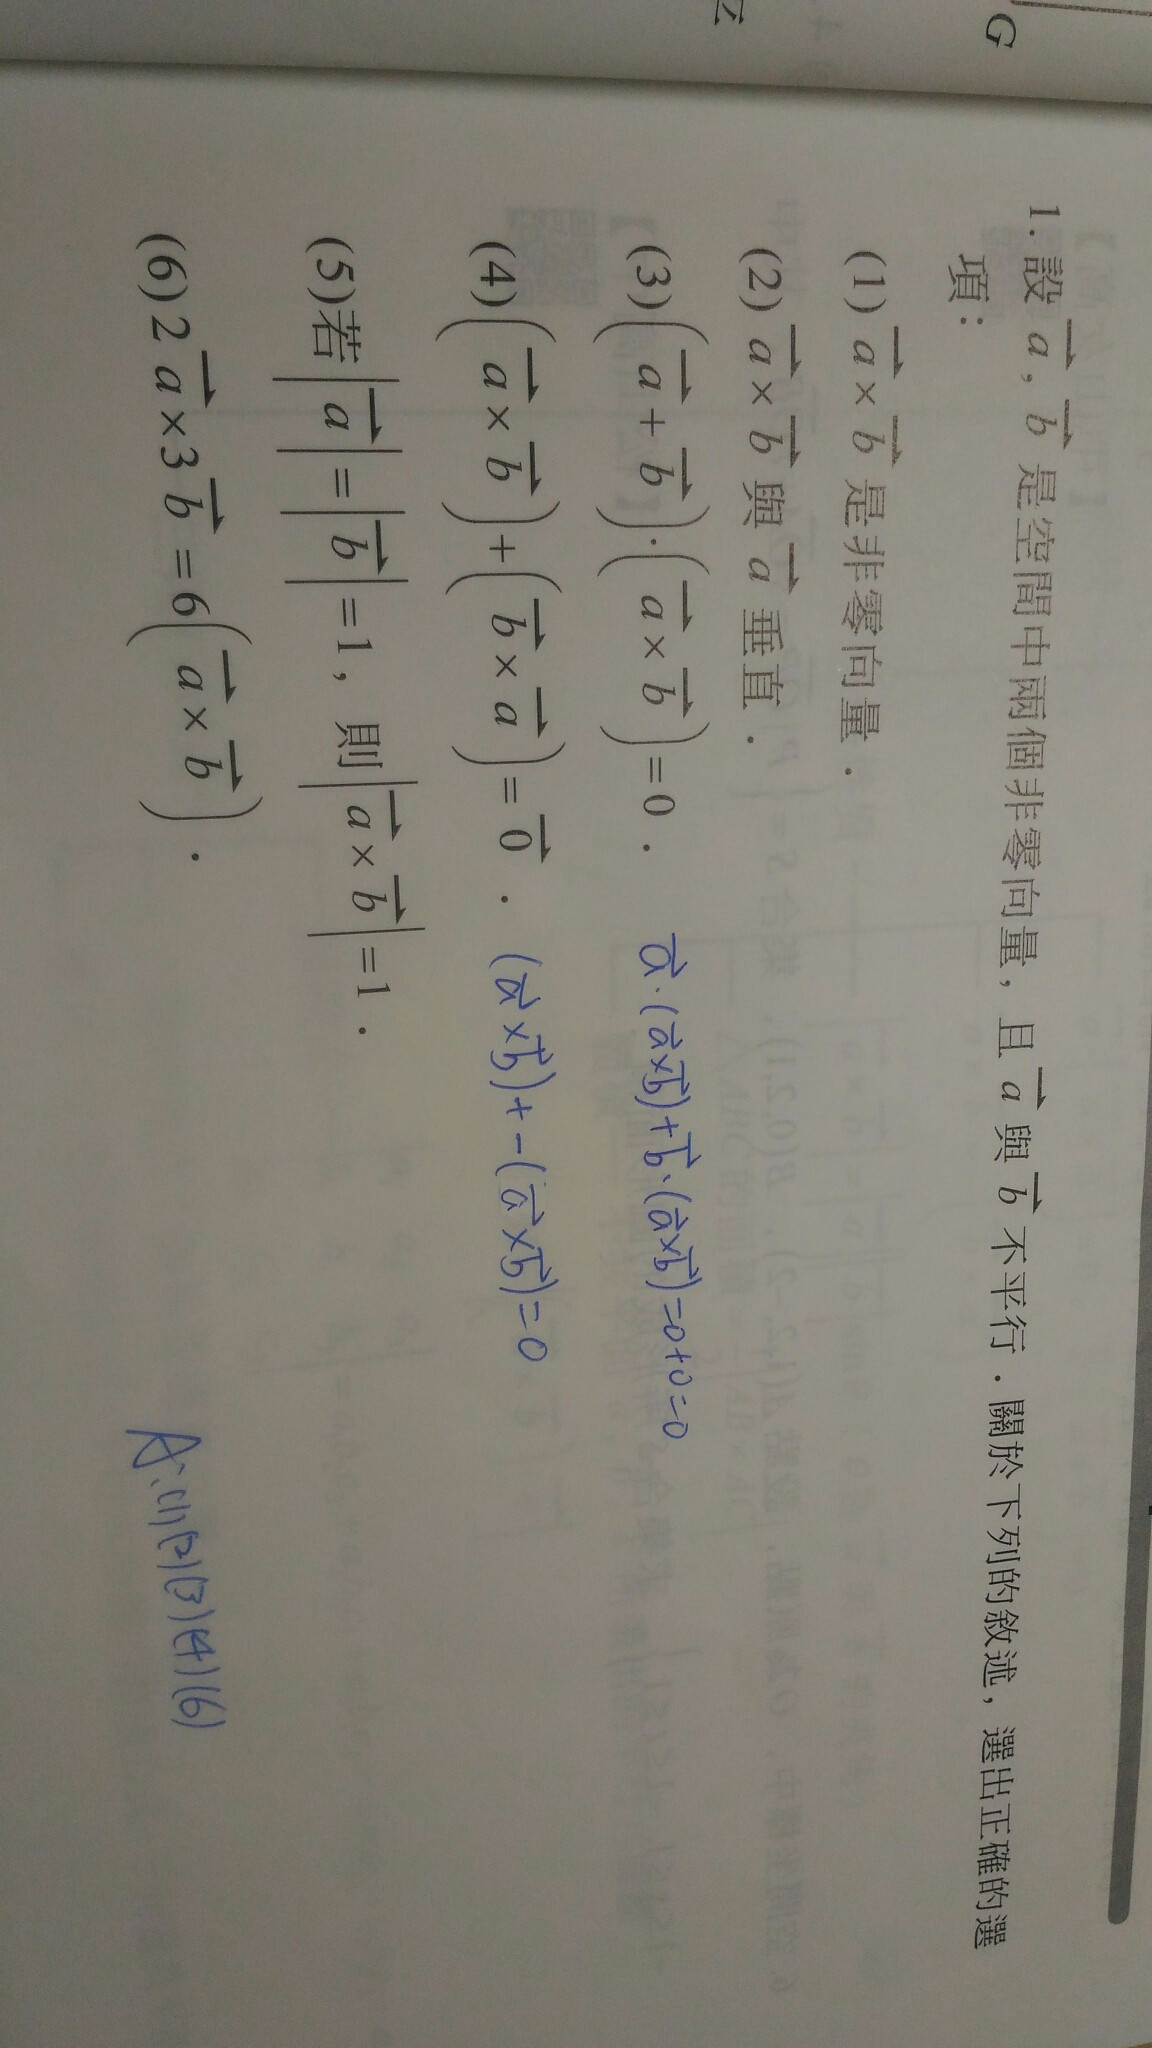 G
1. 設 $\vec{a}$, $\vec{b}$ 是空間中兩個非零向量, 且 $\vec{a}$ 與 $\vec{b}$ 不平行. 關於下列的敘述, 選出正確的選
項:
(1) $\vec{a}\times\vec{b}$ 是非零向量.
(2) $\vec{a}\times\vec{b}$ 與 $\vec{a}$ 垂直.
(3) $(\vec{a}+\vec{b})\cdot(\vec{a}\times\vec{b})=0$. $\vec{a}\cdot(\vec{a}\times\vec{b})+\vec{b}\cdot(\vec{a}\times\vec{b})=0+0=0$
(4) $(\vec{a}\times\vec{b})+(\vec{b}\times\vec{a})=\vec{0}$. $(\vec{a}\times\vec{b})+-(\vec{a}\times\vec{b})=0$
(5) 若 $|\vec{a}|=|\vec{b}|=1$, 則 $|\vec{a}\times\vec{b}|=1$.
(6) $2\vec{a}\times3\vec{b}=6(\vec{a}\times\vec{b})$.
A: (1)(2)(3)(4)(6)